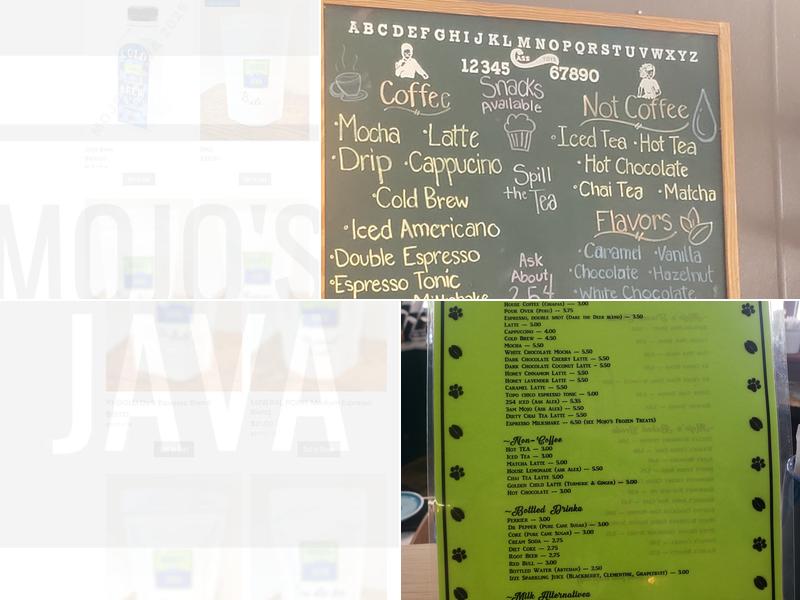 MOJO'S
JAVA
ABCDEFGHIJKLMNOPQRSTUVWXYZ
12345
CASS
67890
Coffee
Mocha · Latte
Drip · Cappucino
Cold Brew
Iced Americano
Double Espresso
Espresso Tonic
Snacks
Available
Spill
the Tea
Ask
About
254
Not Coffee
Iced Tea · Hot Tea
Hot Chocolate
Chai Tea · Matcha
Flavors
Caramel · Vanilla
Chocolate · Hazelnut
White Chocolate
House Coffee (Chiapas) — 3.00
Pour Over (Peru) — 3.75
Espresso, double shot (Dare the Deer blend) — 3.50
Latte — 5.00
Cappuccino — 4.00
Cold Brew — 4.50
Mocha — 5.50
White Chocolate Mocha — 5.50
Dark Chocolate Cherry Latte – 5.50
Dark Chocolate Coconut Latte – 5.50
Honey Cinnamon Latte — 5.50
Honey lavender Latte — 5.50
Caramel Latte — 5.50
Topo chico espresso tonic — 5.00
254 iced (Ask Alex) — 5.35
3am Mojo (Ask Alex) — 5.50
Dirty Chai Tea Latte — 5.50
Espresso Milkshake — 6.50 (see Mojo's Frozen Treats)
~Non-Coffee
Hot Tea — 3.00
Iced Tea — 3.00
Matcha Latte — 5.00
House Lemonade (ask Alex) — 5.50
Chai Tea Latte 5.00
Golden Child Latte (Turmeric & Ginger) — 5.00
Hot Chocolate — 3.00
~Bottled Drinks
Perrier — 3.00
Dr Pepper (Pure Cane Sugar) — 3.00
Coke (Pure Cane Sugar) — 3.00
Cream Soda — 2.75
Diet Coke — 2.75
Root Beer — 2.75
Red Bull — 3.00
Bottled Water (Artesian) — 2.50
Izze Sparkling Juice (Blackberry, Clementine, Grapefruit) — 3.00
~Milk Alternatives